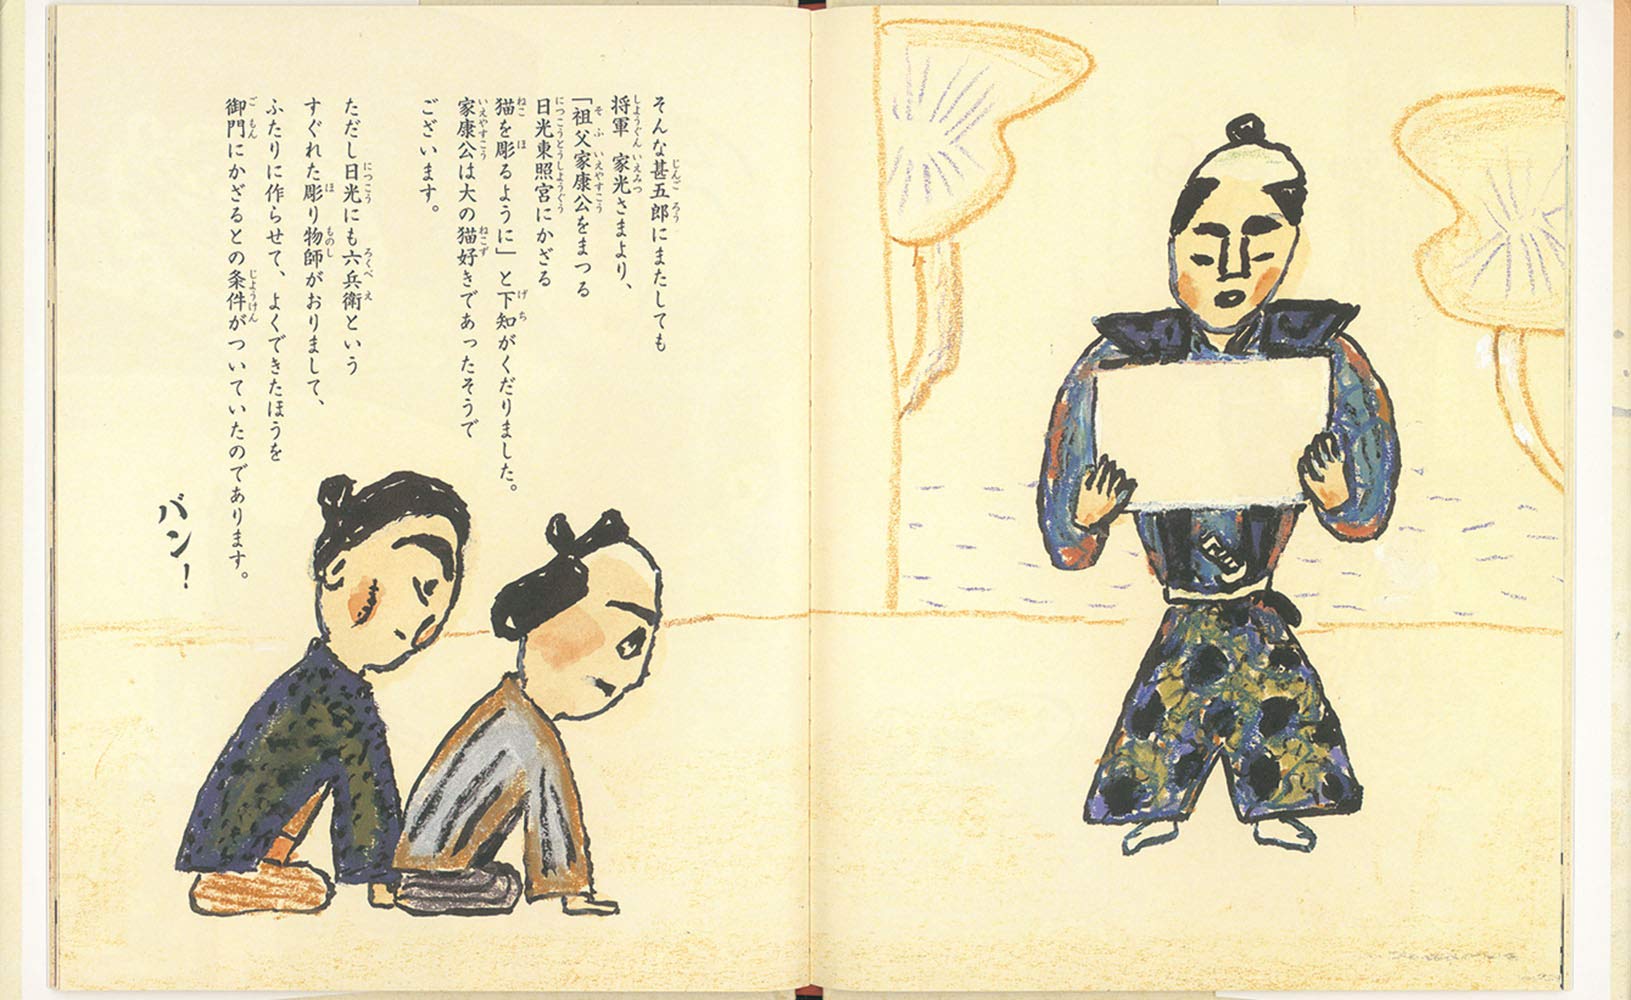 そんな甚五郎にまたしても
将軍 家光さまより、
「祖父家康公をまつる
日光東照宮にかざる
猫を彫るように」と下知がくだりました。
家康公は大の猫好きであったそうで
ございます。
ただし日光にも六兵衛という
すぐれた彫り物師がおりまして、
ふたりに作らせて、よくできたほうを
御門にかざるとの条件がついていたのであります。
バン!